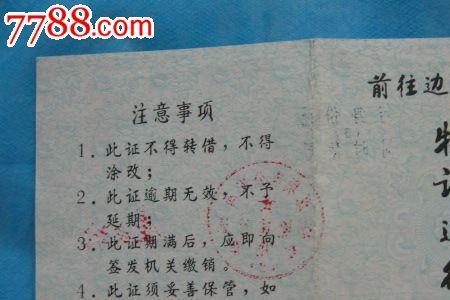 7788.com
注意事项
1.此证不得转借，不得
涂改；
2.此证逾期无效，不予
延期；
3.此证期满后，应即向
签发机关缴销。
4.此证须妥善保管，如
前往边
特